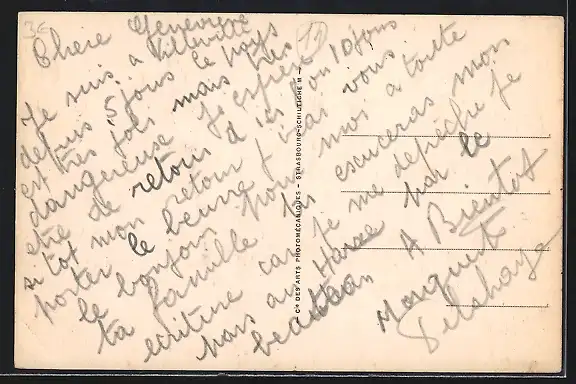 36
11
Chère Geneviève
Je suis à Villeville
depuis 5 jours le pays
est très joli mais très
dangereuse Je espère
etre de retour d'ici 8 ou 10 jours
si tot mon retour j'irai vous
porter le beurre
le bonjour pour moi a toute
ta famille tu escuceras mon
ecriture car je me depeche je
pars au Havre par le
beau
A Bientot
Marguerite
Delahaye
Cie DES ARTS PHOTOMÉCANIQUES - STRASBOURG-SCHILTIGHEIM